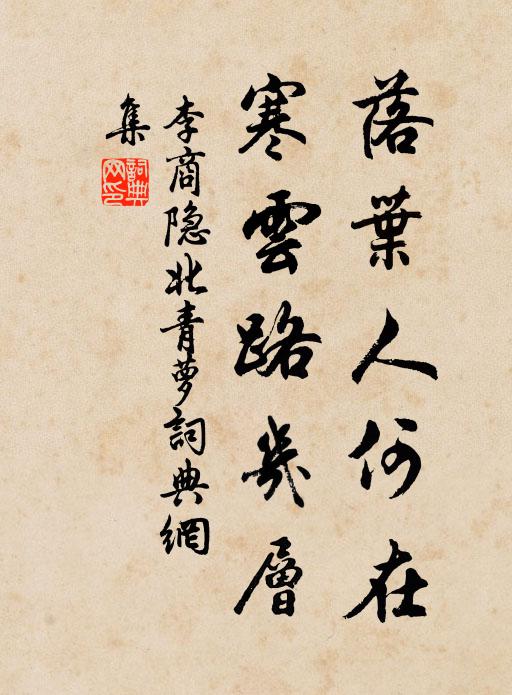 落葉人何在
寒雲路幾層
李商隐北青夢詞典網
集
詞典
网印